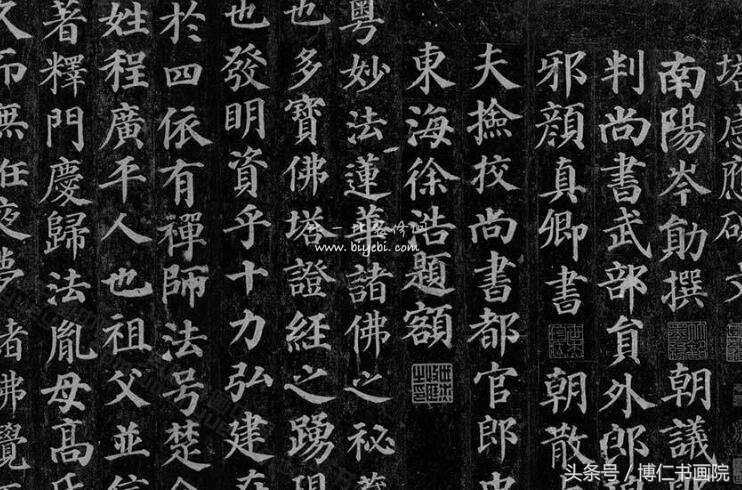 塔感應碑文
南陽岑勛撰 朝議郎
判尚書武部員外郎
邪顏真卿書 朝散
夫撿挍尚書都官郎中
東海徐浩題額
粵妙法蓮華諸佛之祕藏
也多寶佛塔證經之踴現
也發明資乎十力弘建在
於四依有禪師法号楚金
姓程廣平人也祖父並信
著釋門慶歸法胤母高氏
久而無妊夜夢諸佛覺
www.biyebi.com
头条号 / 博仁书画院